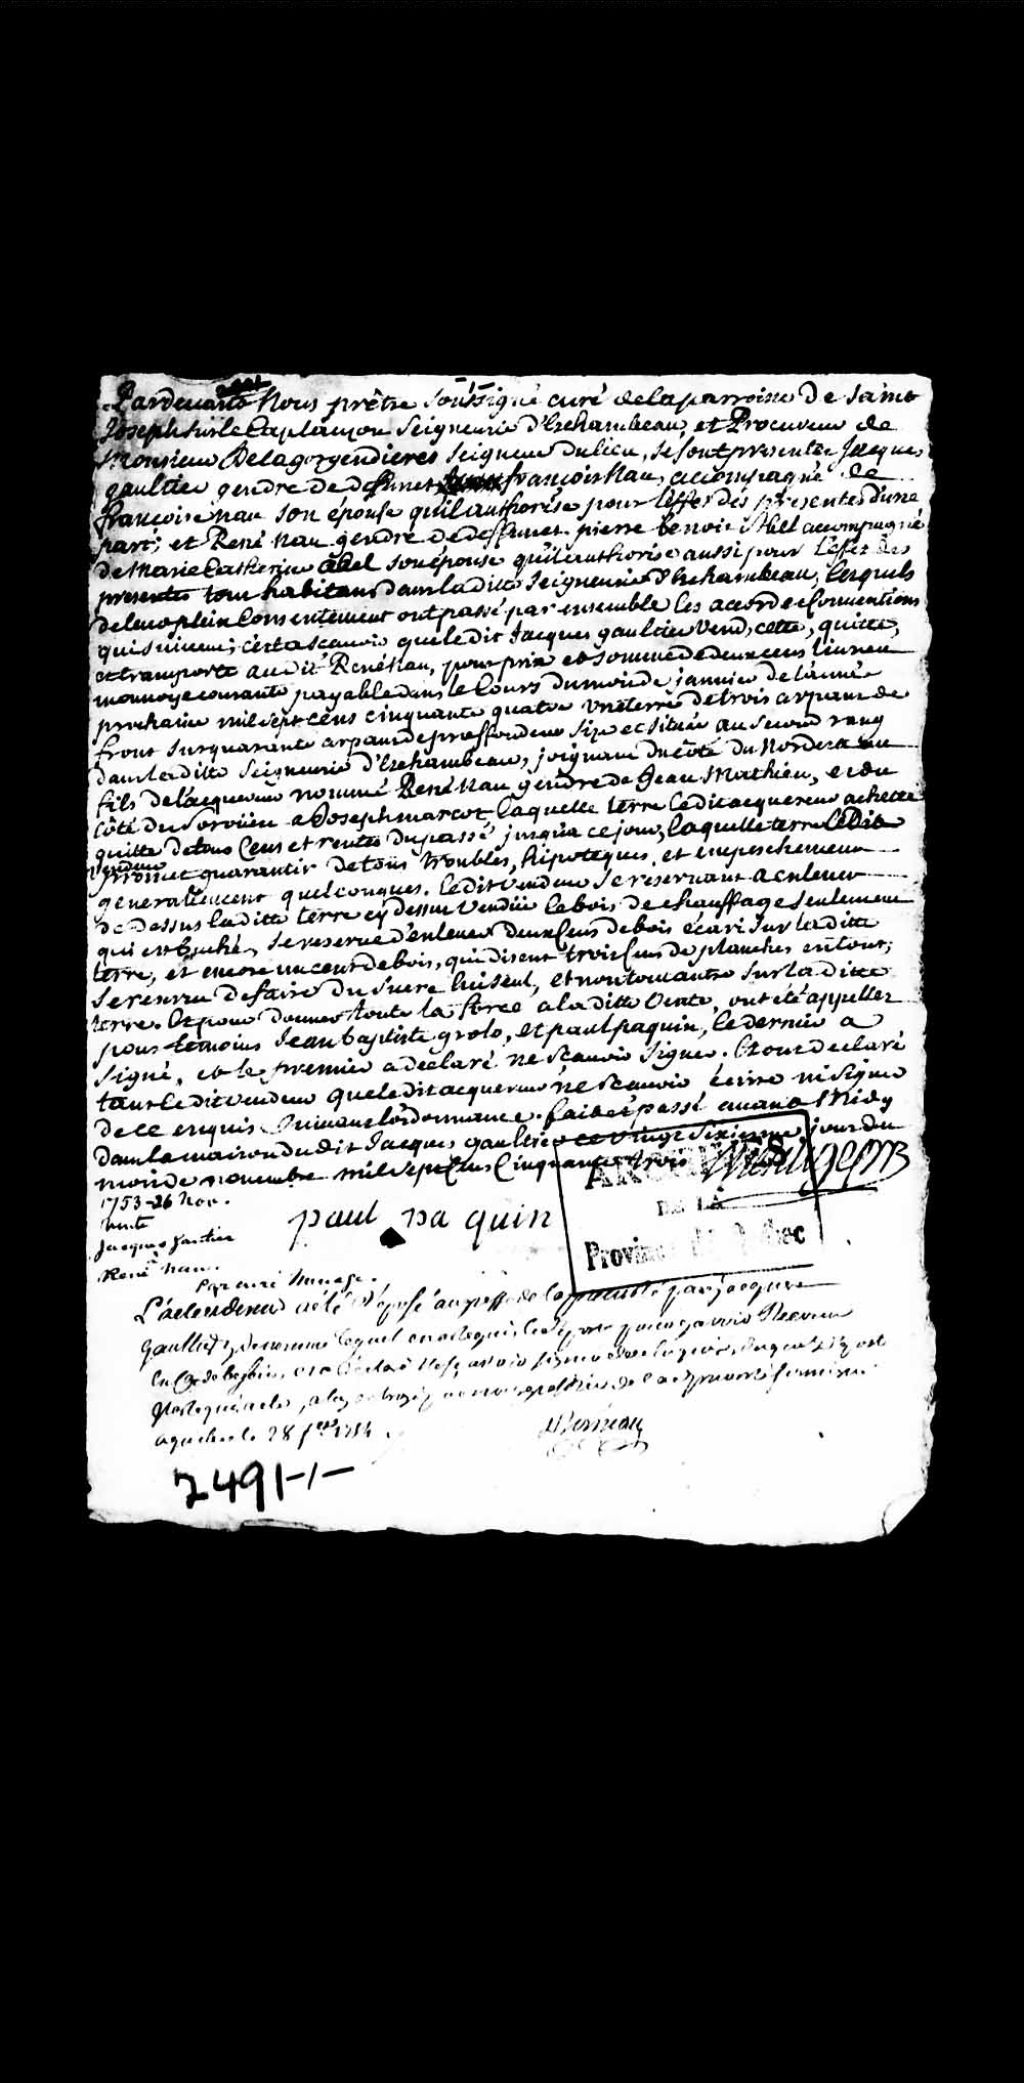 Pardevants Nous prêtre Soussigné curé de la parroisse de Saint
Joseph sur le Caplançon Seigneurie d'Eschambeau, et Procureur de
Monsieur Delagorgendieres Seigneur du lieu, se sont presentes Jacques
gaultier gendre de deffunct françois Nau, accompagné de
françoise nau son épouse qu'il authorise pour l'effet des presentes d'une
part; et René Nau gendre de deffunct pierre benoit Abel accompagné
de Marie Catherine abel son épouse qu'il authorise aussi pour l'effet des
presentes tous habitans dans la ditte Seigneurie d'Eschambeau, lesquels
de leur plein Consentement ont passé par ensemble les accords et Conventions
qui suivent; c'est a scavoir que le dit Jacques gaultier vend, cette, quitte,
et transporte au dit René Nau, pour prix et somme de deux cens livres
monnoye courante payable dans le Cours du mois de janvier de l'année
prochaine mil sept cens cinquante quatre une terre de trois arpans de
front sur quarante arpans de proffondeur size et située au second rang
dans la ditte Seigneurie d'Eschambeau, joignant du côté du Nordest au
fils de l'acquereur nommé René Nau gendre de Jean Mathieu, et du
côté du Sorouen a Joseph marcot, laquelle terre le dit acquereur achette
quitte de tous Cens et rentes du passé jusqu'a ce jour, laquelle terre le dit
vendeur promet quarantir de tous troubles, hipoteques, et empeschemens
generallement quelconques. le dit vendeur se reservant a enlever
de dessus la ditte terre cy dessus vendüe le bois de chauffage seulement
qui est buché, se reserve d'enlever deux Cens de bois écari sur la ditte
terre, et encore un cent de bois, qui disent trois Cens de planches en tout;
se reserve de faire du sucre lui seul, et non tout autre sur la ditte
terre. Et pour donner toute la force a la ditte vente, ont été appellez
pour témoins Jean baptiste grolo, et paul paquin, le dernier a
signé, et le premier a declaré ne scavoir signer. Et ont declaré
tant le dit vendeur que le dit acquereur ne scavoir écrire ni signer
de ce enquis Suivant l'ordonnance. fait et passé avant Midy
dans la maison du dit Jacques gaultier ce vingt sixieme jour du
mois de novembre mil sept Cens Cinquante trois
ARCHIVES
DE LA
Province de Québec
1753-26 Nov.
Vente
Jacques Gautier
René Nau.
paul pa quin
Par curé Menage.
L'acte cy dessus a été deposé
Gaultier y denommé lequel
a quebec le 28
2491-1-